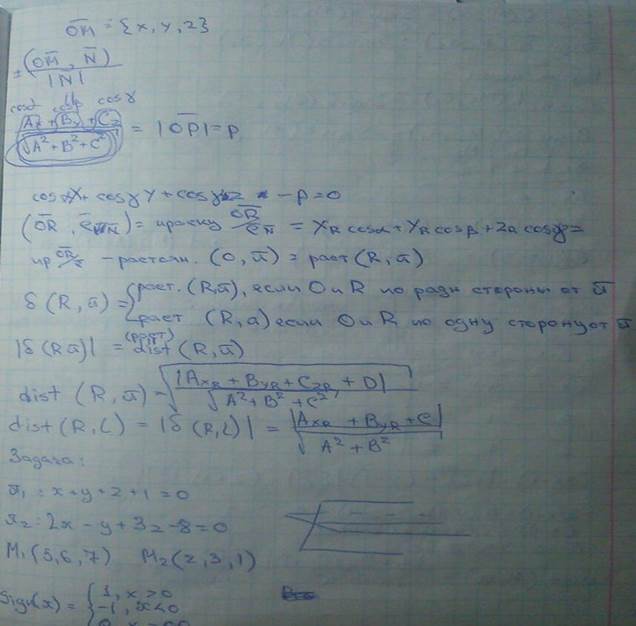 OM = {x, y, z}
± (OM, N) / |N|
cosα cosβ cosγ
Ax + By + Cz / √A² + B² + C² = |OP| = p
cosαx + cosγ y + cosγ z - p = 0
(OR, e N) = проекц OR / e n = x_R cosα + y_R cosβ + z_R cosγ =
пр OR/e - расстоян. (O, π) = раст (R, π)
δ (R, π) = { раст. (R, π), если O и R по разн стороны от π
раст (R, π) если O и R по одну сторону от π
(раст)
|δ(Rπ)| = dist (R, π)
dist (R, π) = √ |Ax_R + By_R + Cz_R + D| / √A² + B² + C²
dist (R, L) = |δ (R, L)| = |Ax_R + By_R + C| / √A² + B²
Задача:
π₁ : x + y + z + 1 = 0
π₂ : 2x - y + 3z - 8 = 0
M₁ (5, 6, 7) M₂ (2, 3, 1)
Sign(x) = { 1, x > 0
-1, x < 0